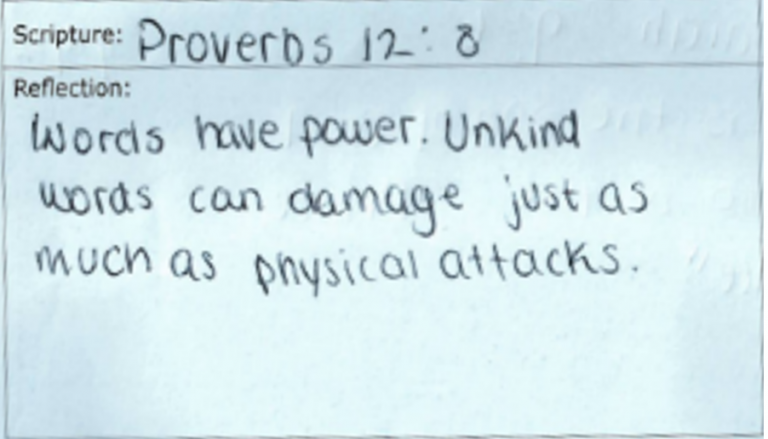 Scripture: Proverbs 12:8
Reflection:
Words have power. Unkind
words can damage just as
much as physical attacks.